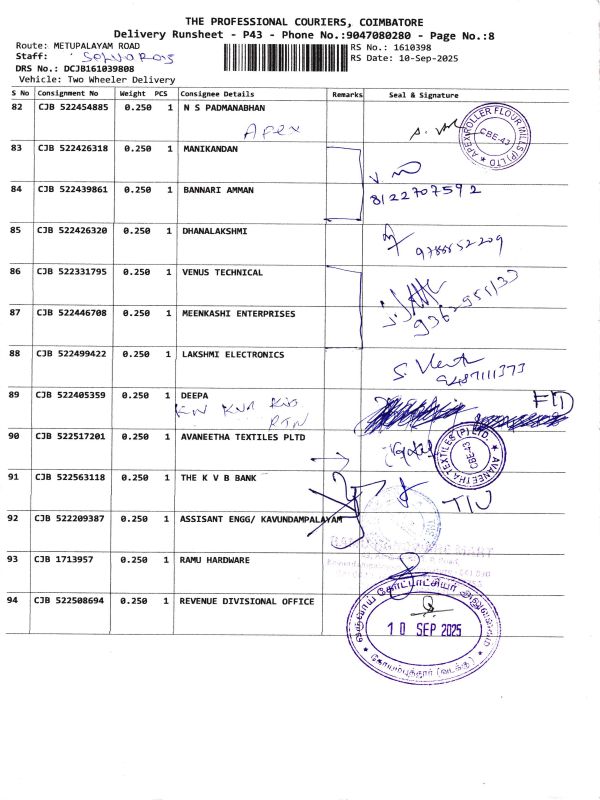 THE PROFESSIONAL COURIERS, COIMBATORE
Delivery Runsheet - P43 - Phone No.:9047080280 - Page No.:8
Route: METUPALAYAM ROAD
RS No.: 1610398
Staff:
RS Date: 10-Sep-2025
DRS No.: DCJB161039808
Vehicle: Two Wheeler Delivery
S No Consignment No Weight PCS Consignee Details Remarks Seal & Signature
82 CJB 522454885 0.250 1 N S PADMANABHAN
Apex
APEX ROLLER FLOUR MILLS (P) LTD
CBE-43
83 CJB 522426318 0.250 1 MANIKANDAN
84 CJB 522439861 0.250 1 BANNARI AMMAN
8122707592
85 CJB 522426320 0.250 1 DHANALAKSHMI
86 CJB 522331795 0.250 1 VENUS TECHNICAL
87 CJB 522446708 0.250 1 MEENKASHI ENTERPRISES
88 CJB 522499422 0.250 1 LAKSHMI ELECTRONICS
9487111373
89 CJB 522405359 0.250 1 DEEPA
RTN
90 CJB 522517201 0.250 1 AVANEETHA TEXTILES PLTD
AVANEETHA TEXTILES (P) LTD.
CBE-43
91 CJB 522563118 0.250 1 THE K V B BANK
92 CJB 522209387 0.250 1 ASSISANT ENGG/ KAVUNDAMPALAYAM
93 CJB 1713957 0.250 1 RAMU HARDWARE
94 CJB 522508694 0.250 1 REVENUE DIVISIONAL OFFICE
வருவாய் கோட்டாட்சியர் அலுவலகம்
10 SEP 2025
கோயம்புத்தூர் (வடக்கு)